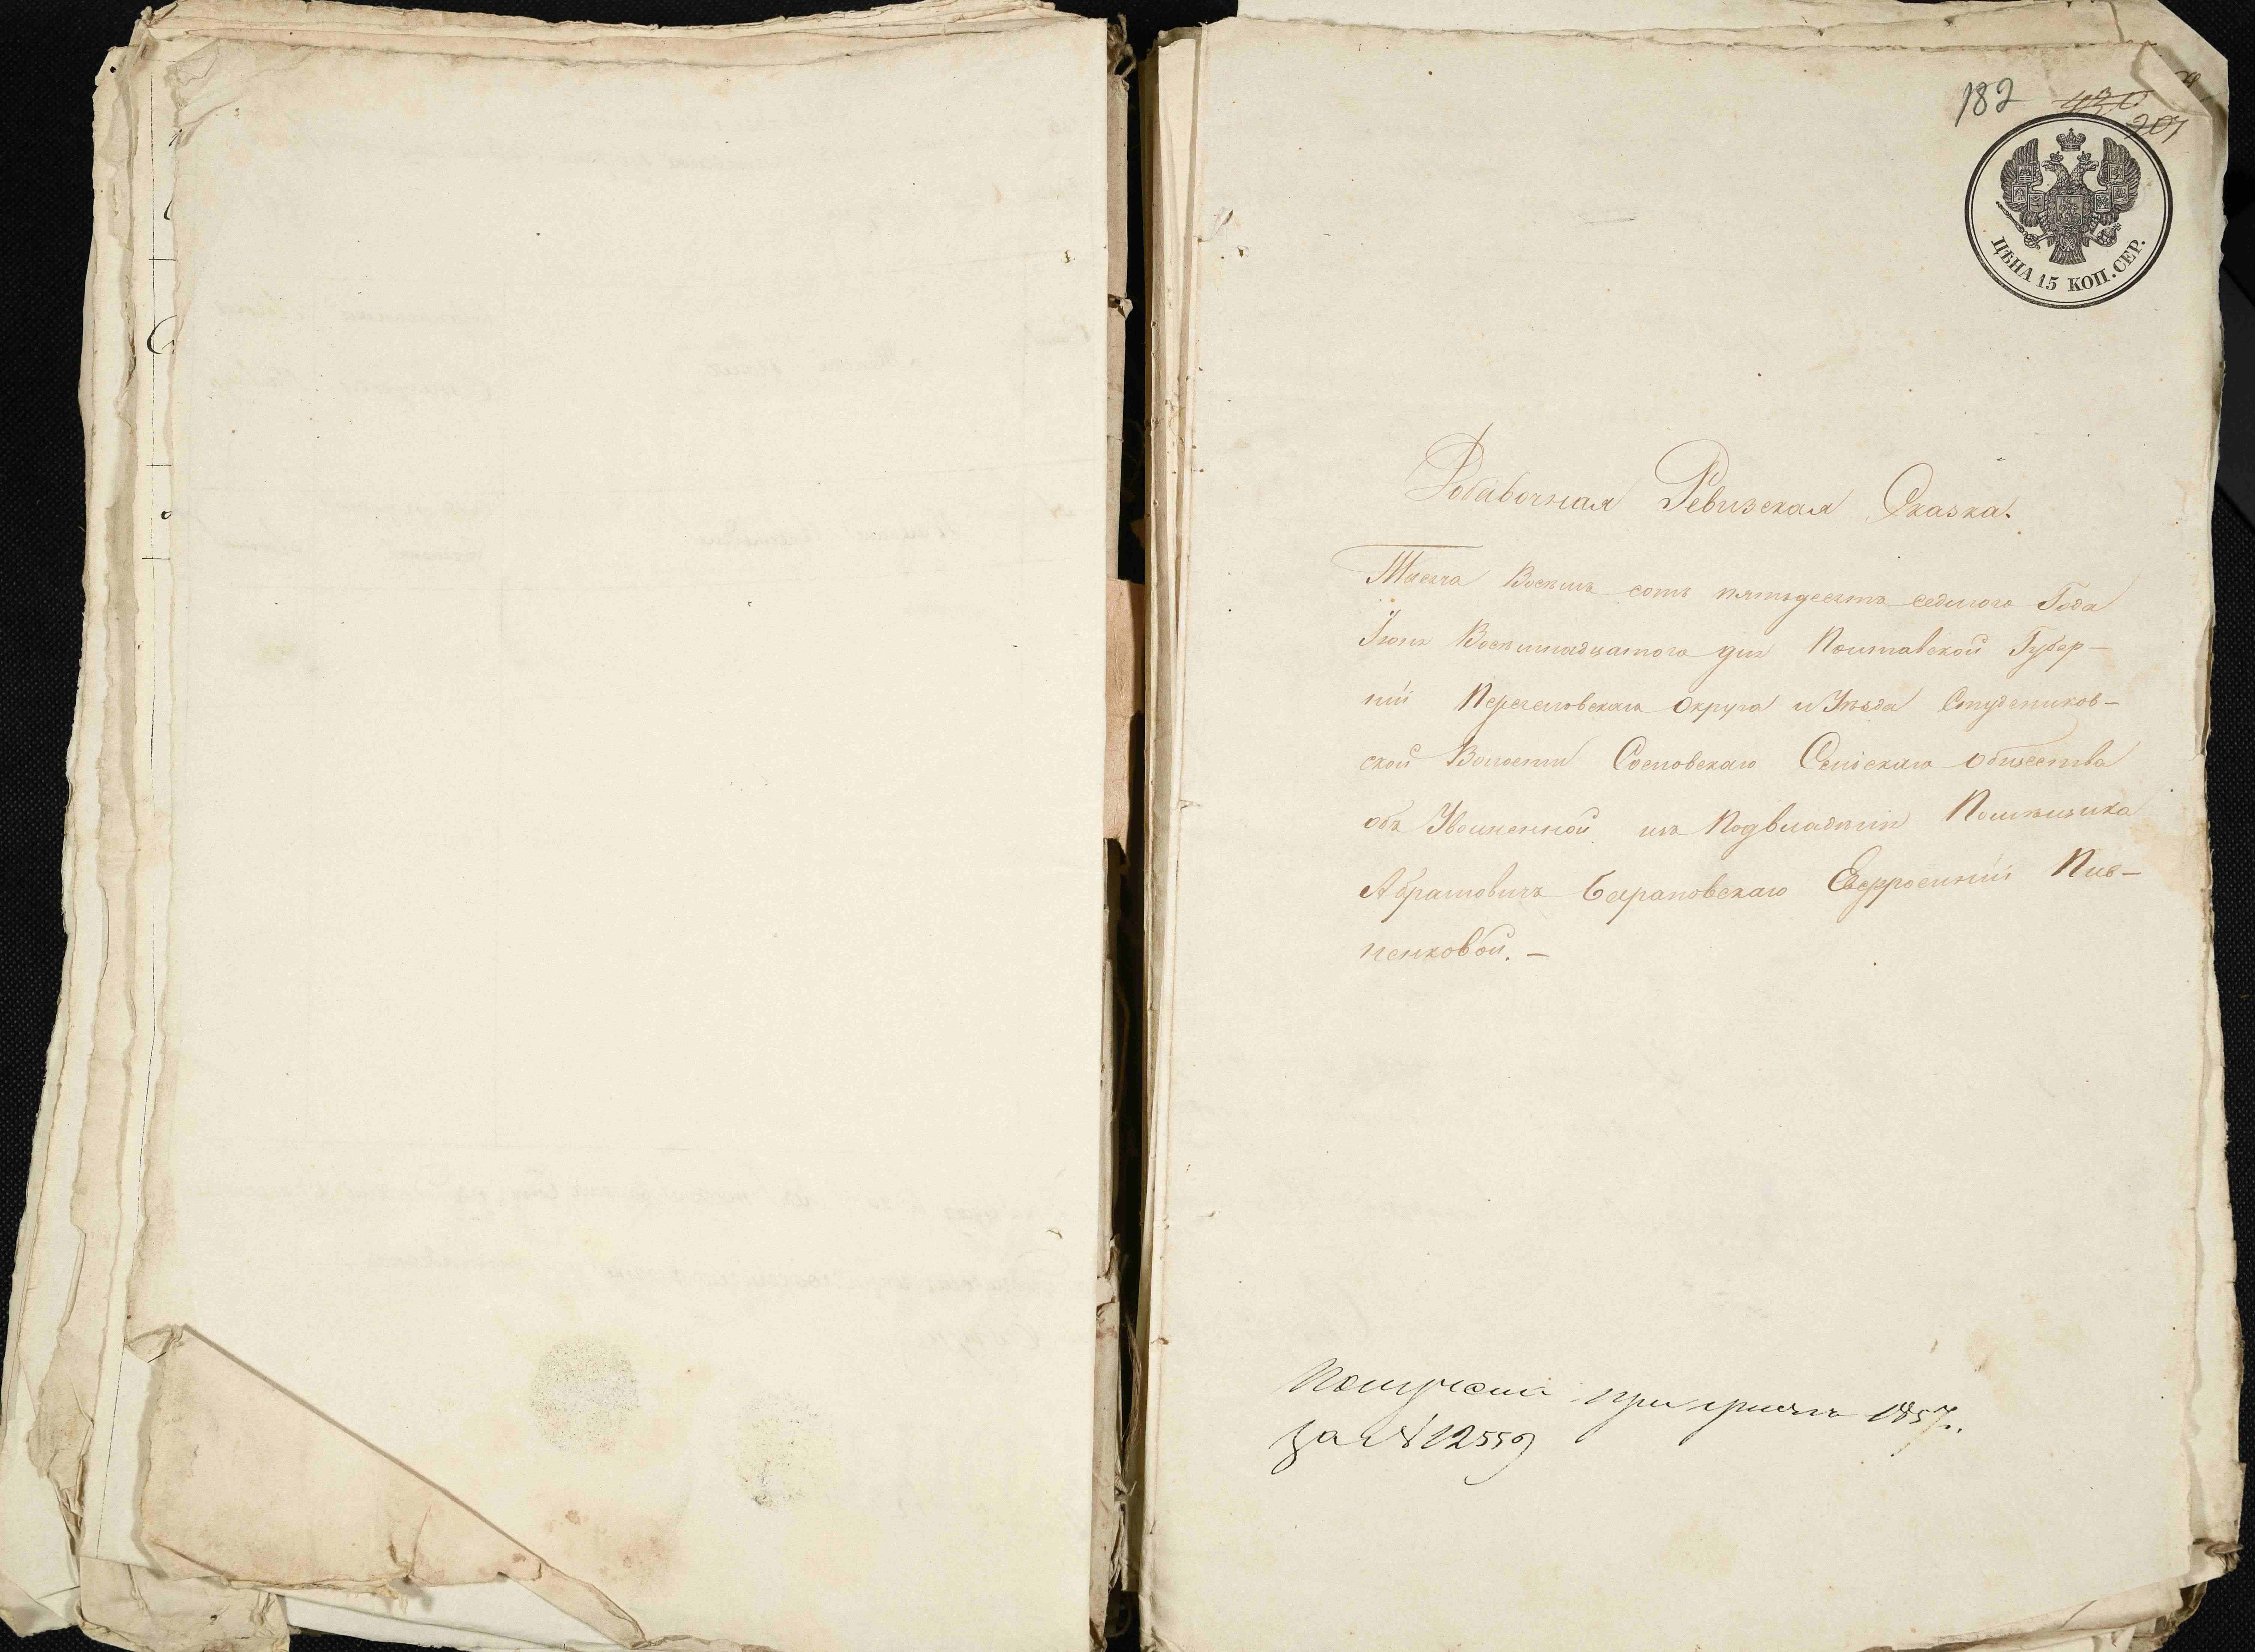 182
430
207
ЦѢНА 15 КОП. СЕР.
Добавочная Ревизская Сказка.
Тысеча Восемь сотъ пятьдесятъ седмого Года
Іюня Восемнадцатого дня Полтавской Губер–
ніи Переяславскаго Округа и Уѣзда Студеников–
ской Волости Сосновскаго Сельскаго Общества
объ Уволненной изъ Подвладѣнія Помѣщика
Абрамовичъ Барановскаго Евфросиніи Пив–
ненковой. –
1857.
за № 12559